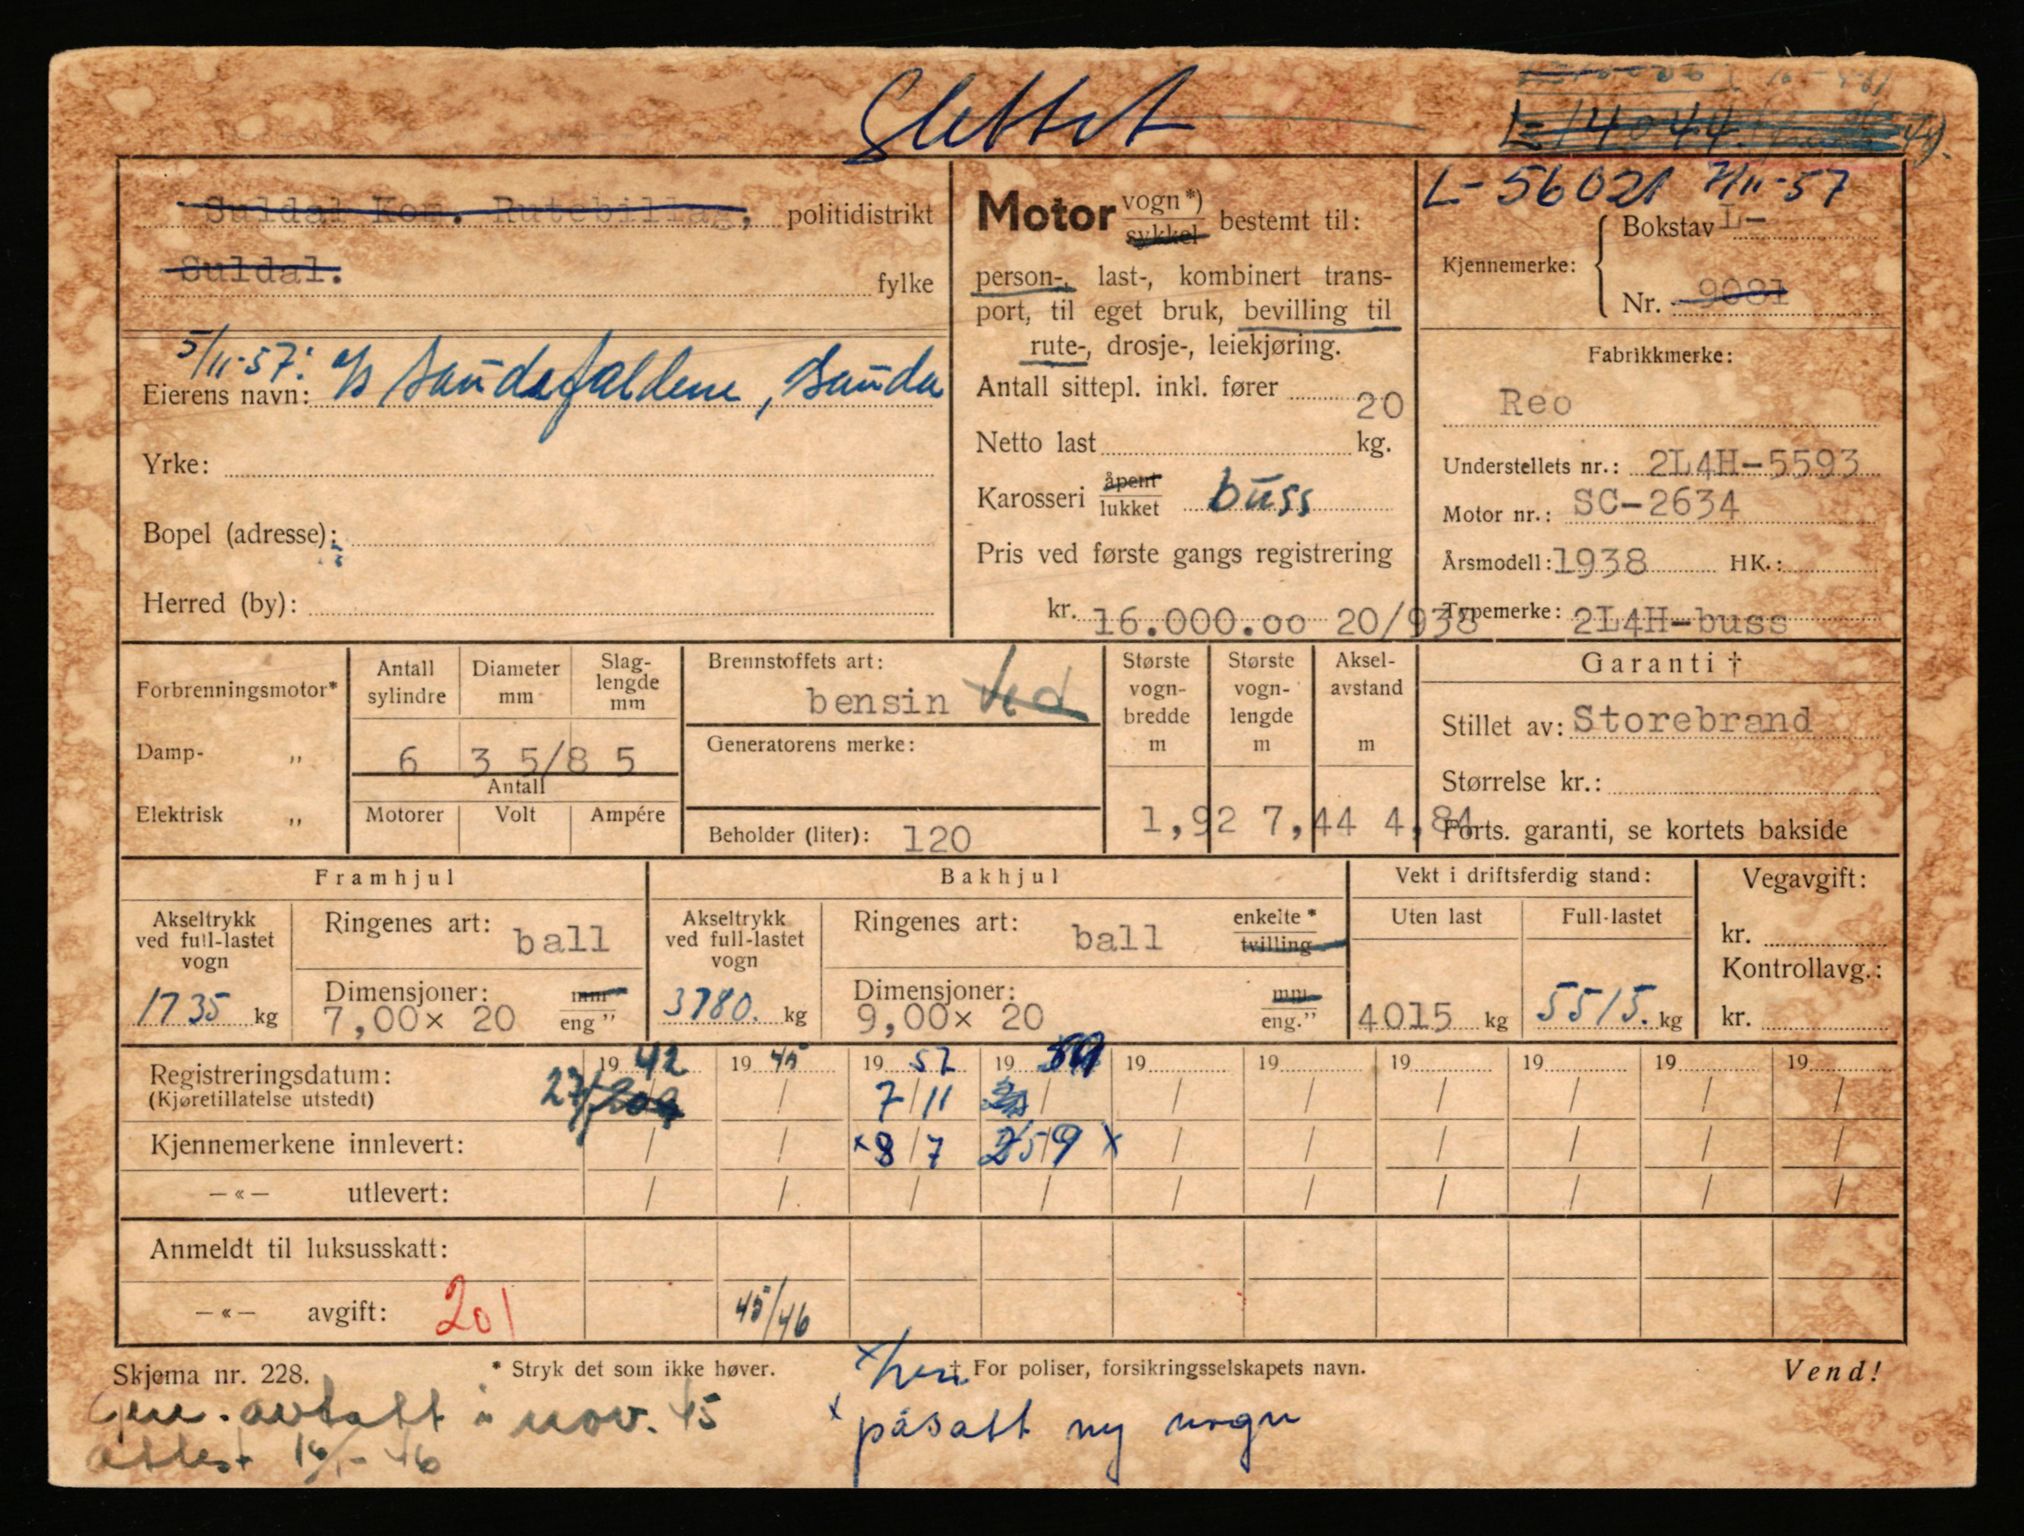 Slettet
L-14044
L-56021 7/11-57
Suldal Kom. Rutebillag, politidistrikt
Suldal. fylke
5/11-57: A/S Saudefaldene, Sauda
Eierens navn:
Yrke:
Bopel (adresse):
Herred (by):
Motor vogn*) sykkel bestemt til:
person-, last-, kombinert trans-
port, til eget bruk, bevilling til
rute-, drosje-, leiekjøring.
Antall sittepl. inkl. fører 20
Netto last kg.
Karosseri åpent lukket buss
Pris ved første gangs registrering
kr. 16.000.oo 20/938
Kjennemerke: Bokstav L-
Nr. 9081
Fabrikkmerke:
Reo
Understellets nr.: 2L4H-5593
Motor nr.: SC-2634
Årsmodell: 1938 HK.:
Typemerke: 2L4H-buss
Forbrenningsmotor*
Damp- „
Elektrisk „
Antall sylindre Diameter mm Slag-lengde mm
6 3 5/8 5
Antall
Motorer Volt Ampére
Brennstoffets art:
bensin Ved
Generatorens merke:
Beholder (liter): 120
Største vogn-bredde m Største vogn-lengde m Aksel-avstand m
1,92 7,44 4,84
Garanti †
Stillet av: Storebrand
Størrelse kr.:
Forts. garanti, se kortets bakside
Framhjul
Akseltrykk ved full-lastet vogn
1735 kg
Ringenes art: ball
Dimensjoner: mm
7,00x 20 eng "
Bakhjul
Akseltrykk ved full-lastet vogn
3780. kg
Ringenes art: ball enkelte * tvilling
Dimensjoner: mm
9,00x 20 eng."
Vekt i driftsferdig stand:
Uten last Full-lastet
4015 kg 5515. kg
Vegavgift:
kr.
Kontrollavg.:
kr.
19 42 19 45 19 57 19 59 19 19 19 19 19 19
Registreringsdatum: 27/ 7/11
(Kjøretillatelse utstedt)
Kjennemerkene innlevert: / / x 8/7 25/9 x
—«— utlevert:
Anmeldt til luksusskatt:
—«— avgift: 201 45/46
Skjema nr. 228. * Stryk det som ikke høver. x her † For poliser, forsikringsselskapets navn. Vend!
Gen. avtatt i nov. 45
attest 16/1-46
x påsatt ny vogn